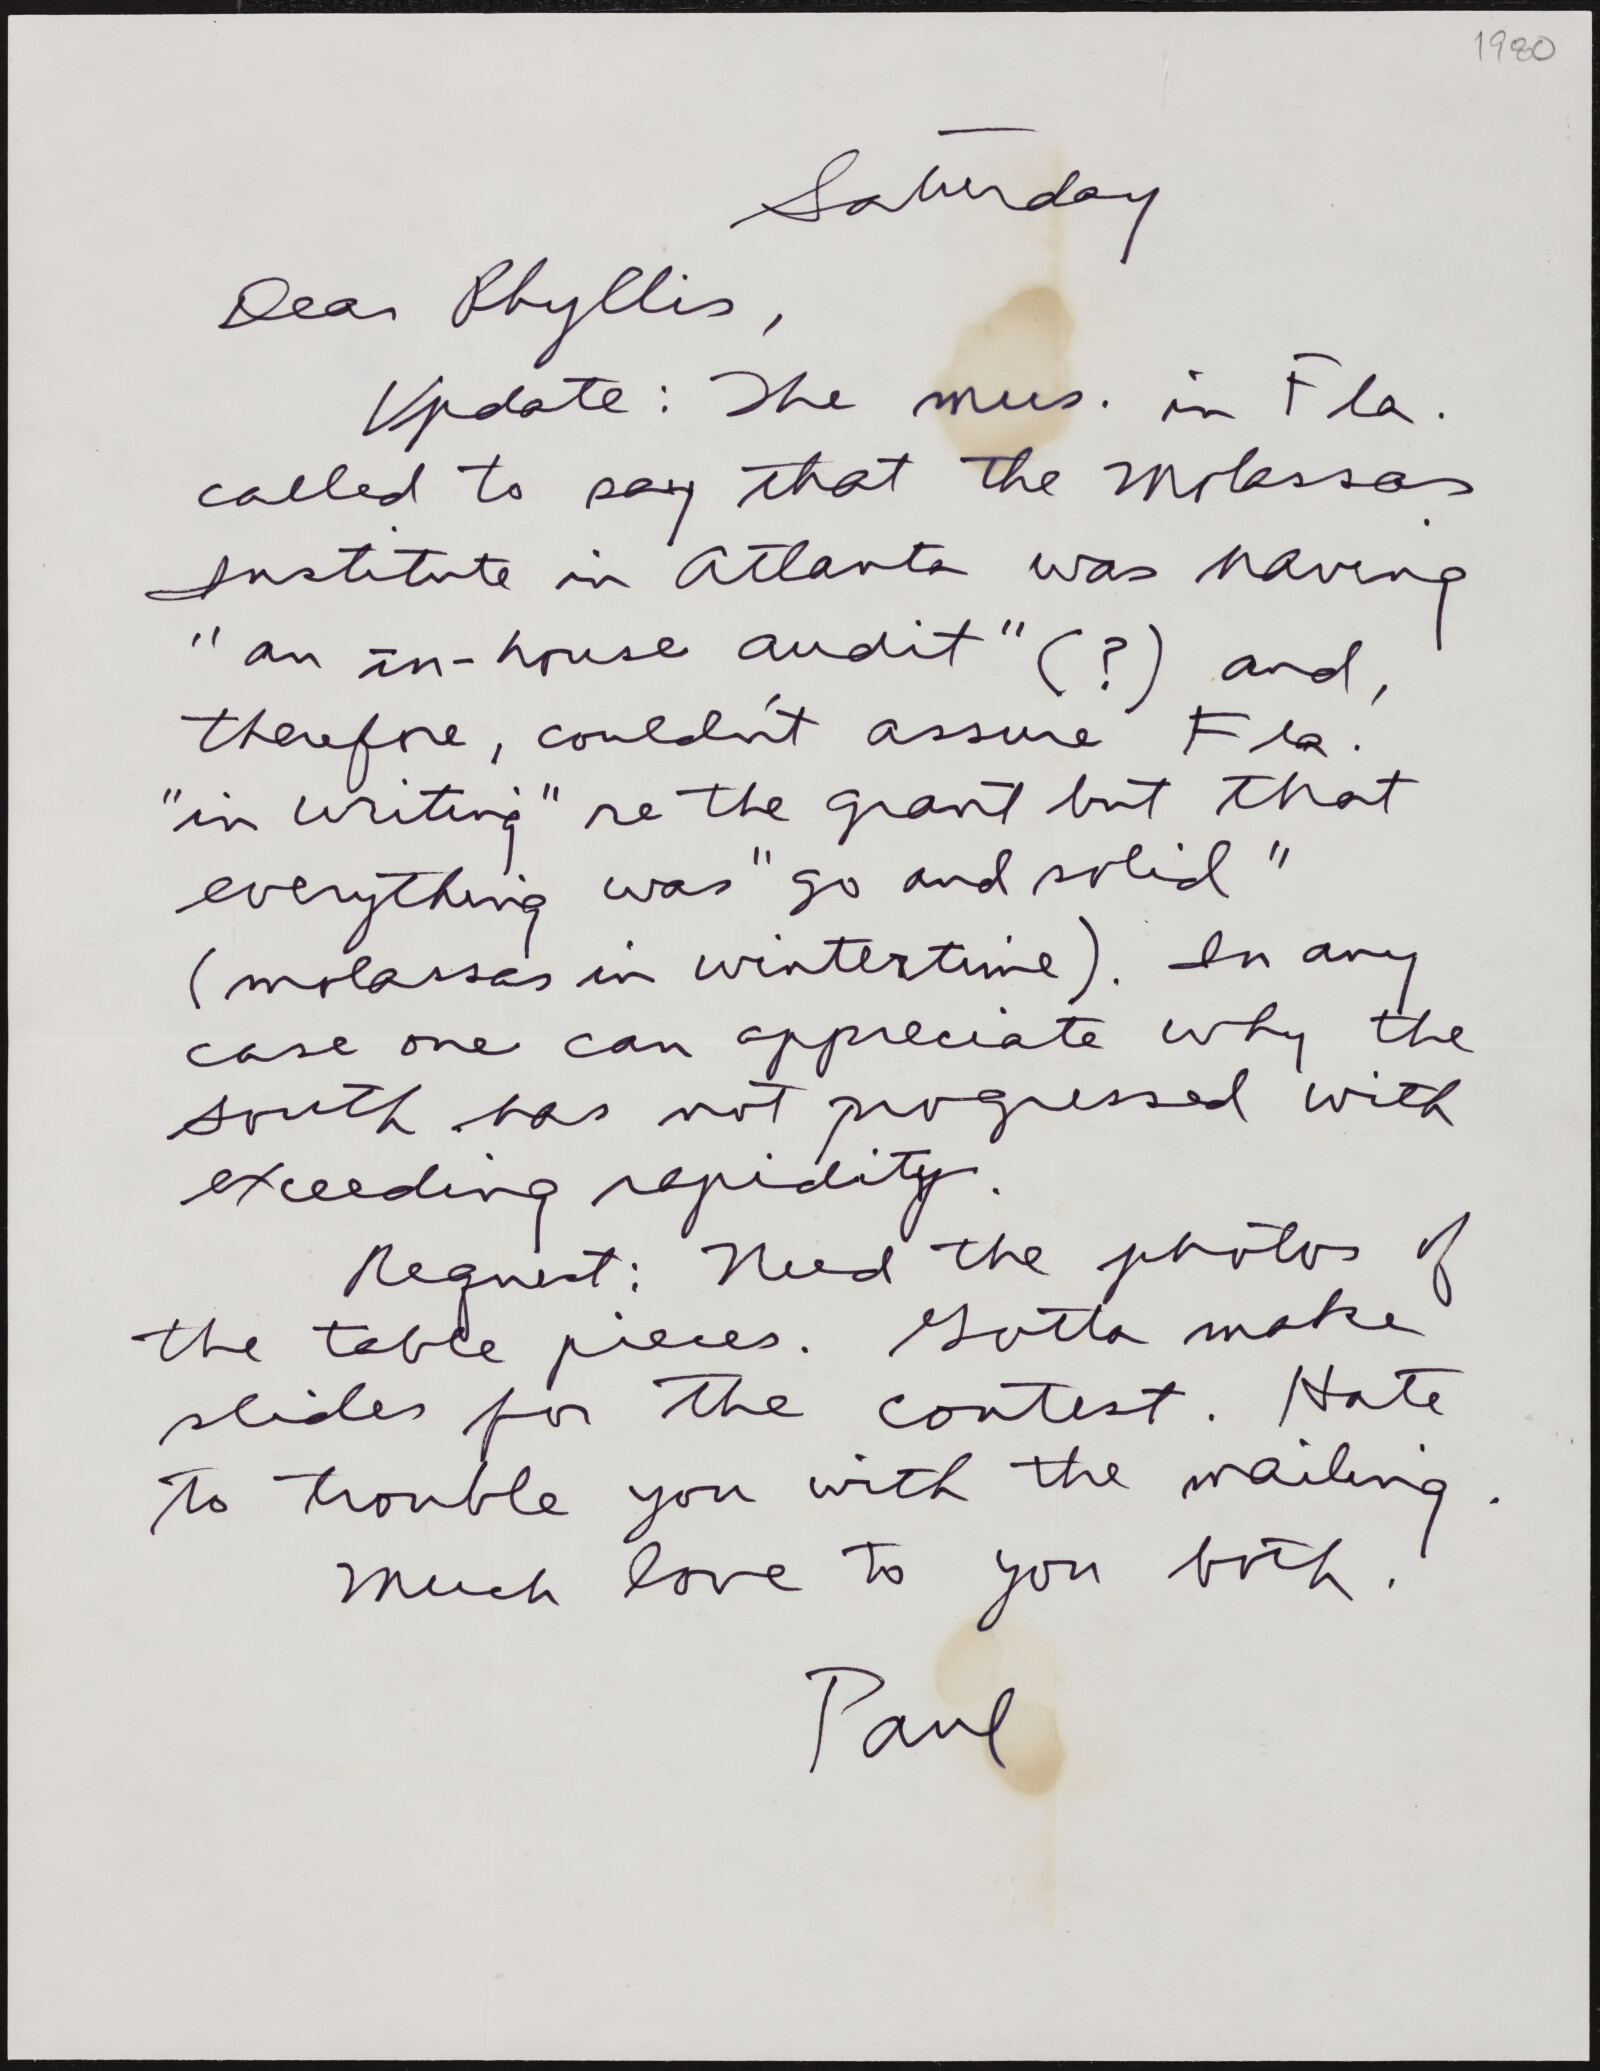 1980
Saturday
Dear Phyllis,
Update: The mus. in Fla.
called to say that the Molassas
Institute in Atlanta was having
"an in-house audit" (?) and,
therefore, couldn't assure Fla.
"in writing" re the grant but that
everything was "go and solid"
(molassas in wintertime). In any
case one can appreciate why the
south has not progressed with
exceeding rapidity.
Request: Need the photos of
the table pieces. Gotta make
slides for the contest. Hate
to trouble you with the mailing.
Much love to you both.
Paul